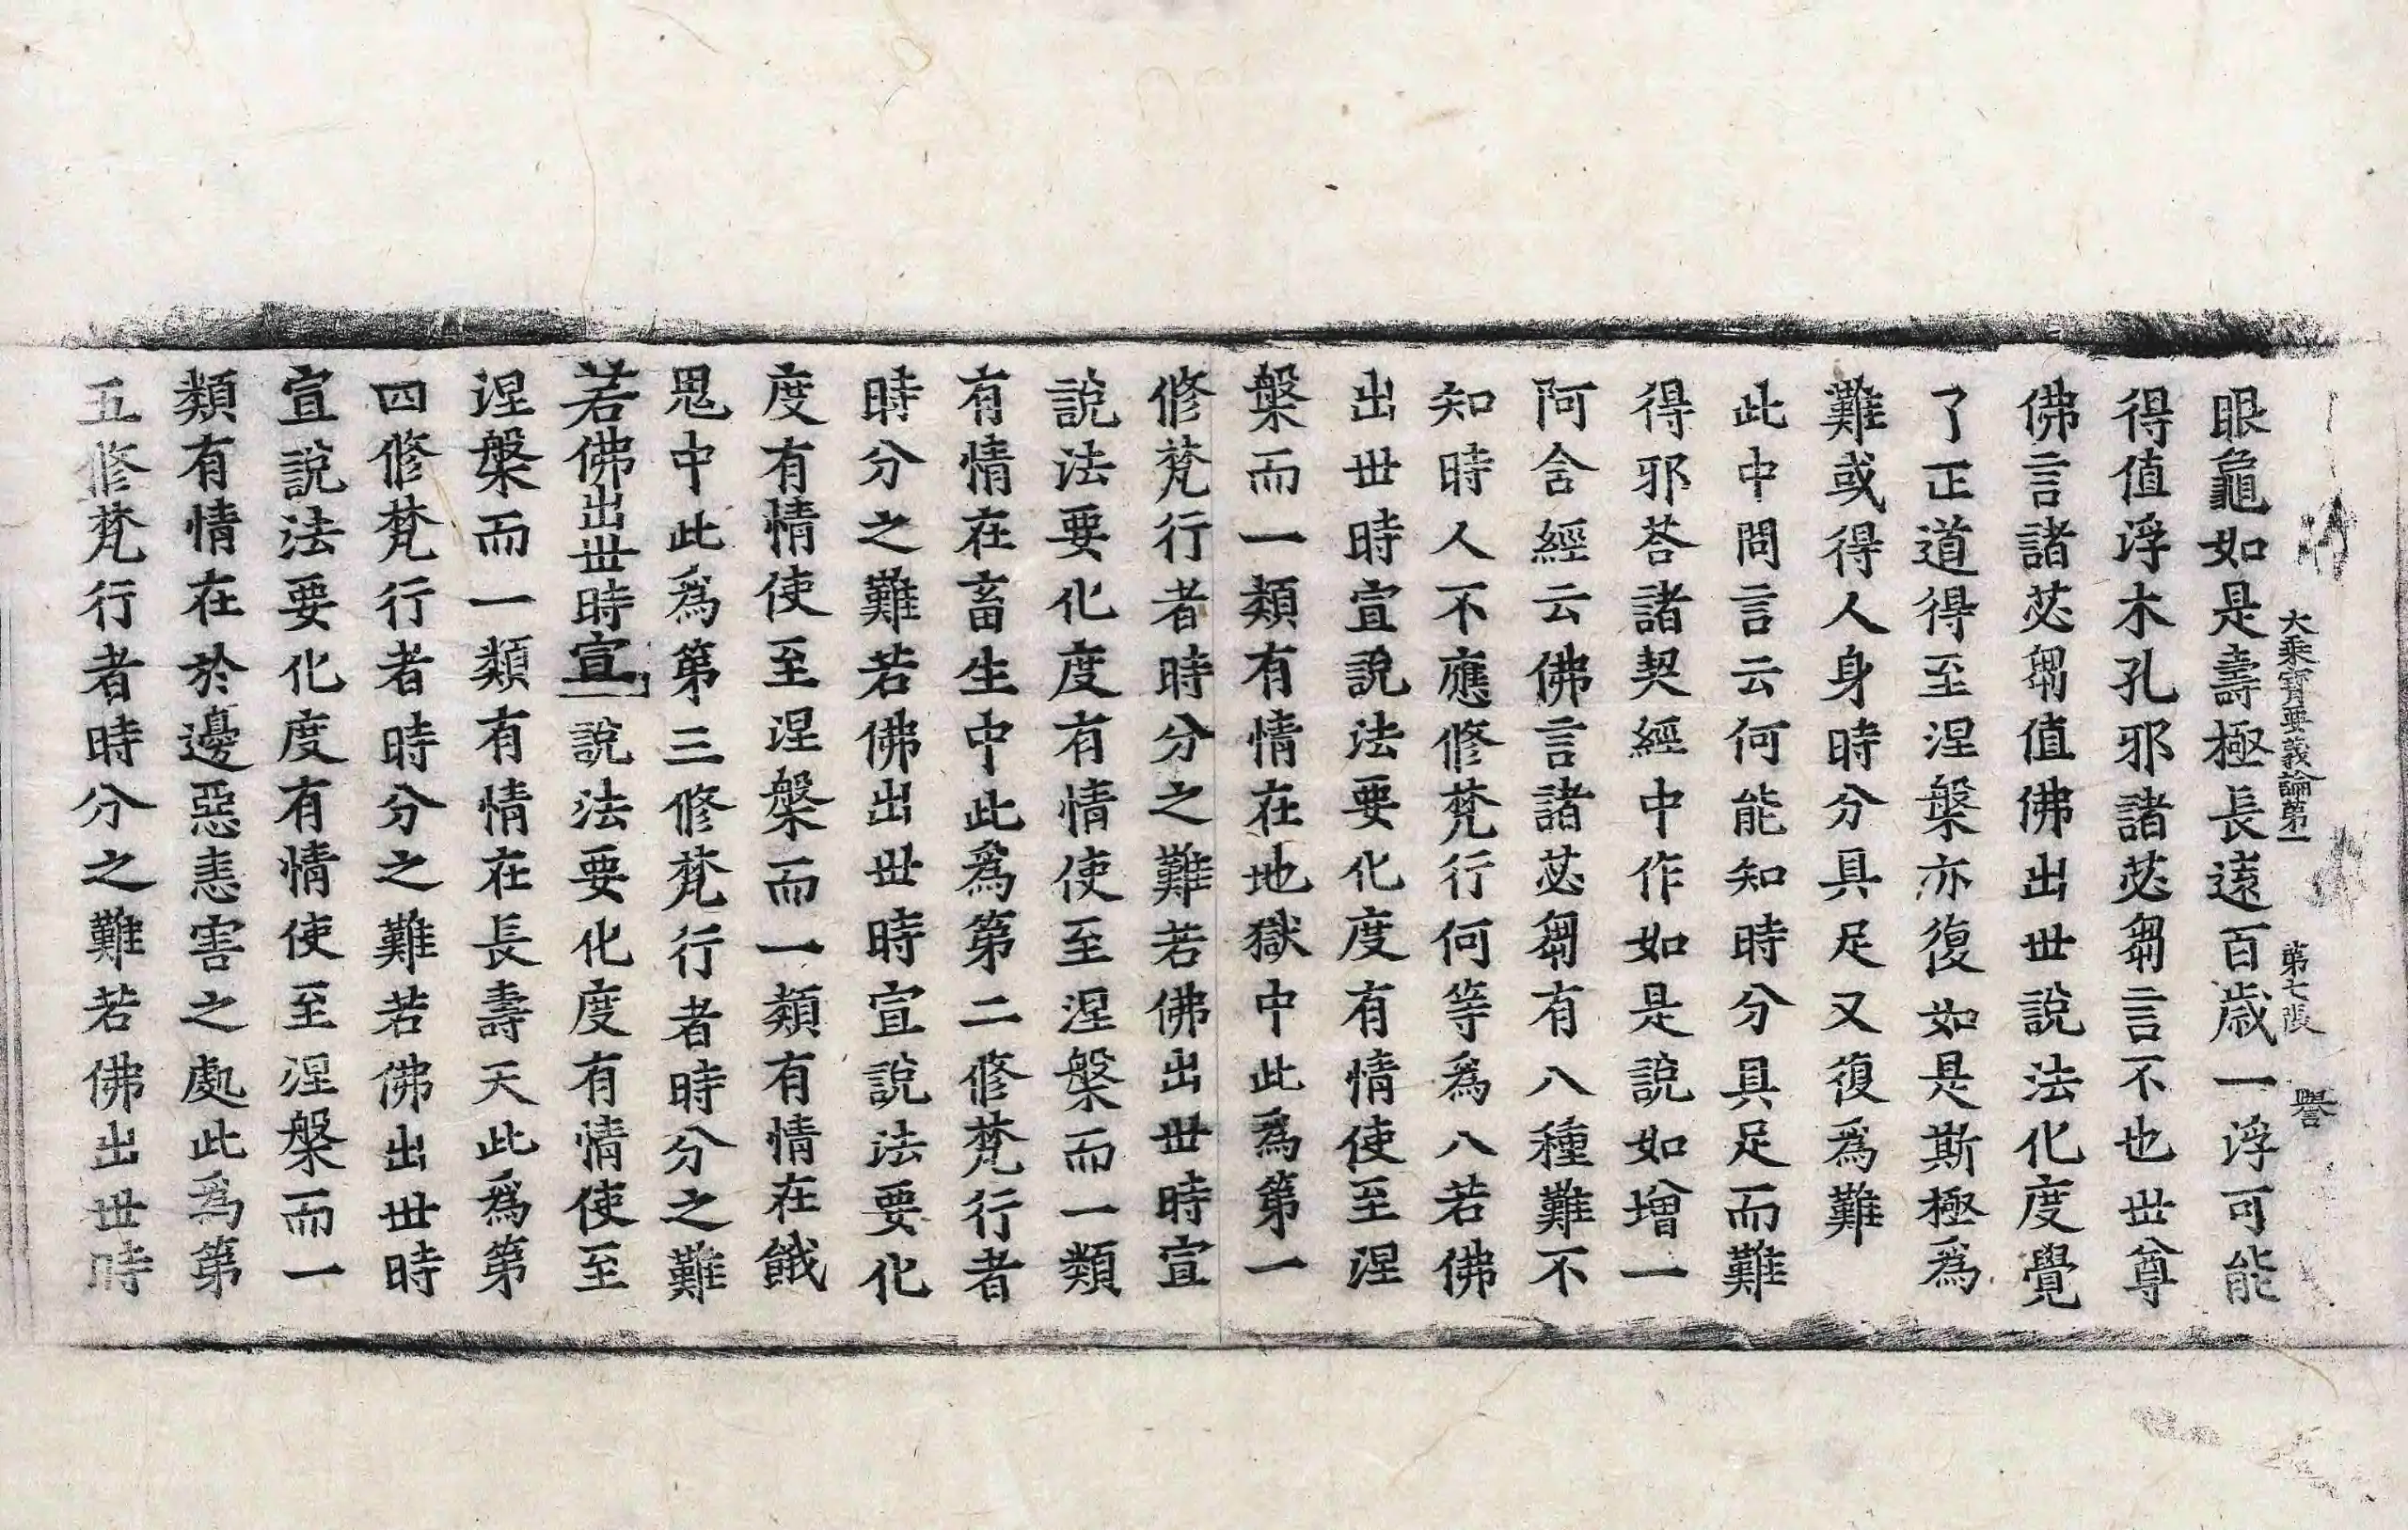 大乘寶要義論第一 第七張 譽
眼龜如是壽極長遠百歲一浮可能
得值浮木孔邪諸苾芻言不也世尊
佛言諸苾芻值佛出世說法化度覺
了正道得至涅槃亦復如是斯極為
難或得人身時分具足又復為難
此中問言云何能知時分具足而難
得邪荅諸契經中作如是說如增一
阿含經云佛言諸苾芻有八種難不
知時人不應修梵行何等為八若佛
出世時宣說法要化度有情使至涅
槃而一類有情在地獄中此為第一
修梵行者時分之難若佛出世時宣
說法要化度有情使至涅槃而一類
有情在畜生中此為第二修梵行者
時分之難若佛出世時宣說法要化
度有情使至涅槃而一類有情在餓
鬼中此為第三修梵行者時分之難
若佛出世時宣說法要化度有情使至
涅槃而一類有情在長壽天此為第
四修梵行者時分之難若佛出世時
宣說法要化度有情使至涅槃而一
類有情在於邊惡恚害之處此為第
五修梵行者時分之難若佛出世時